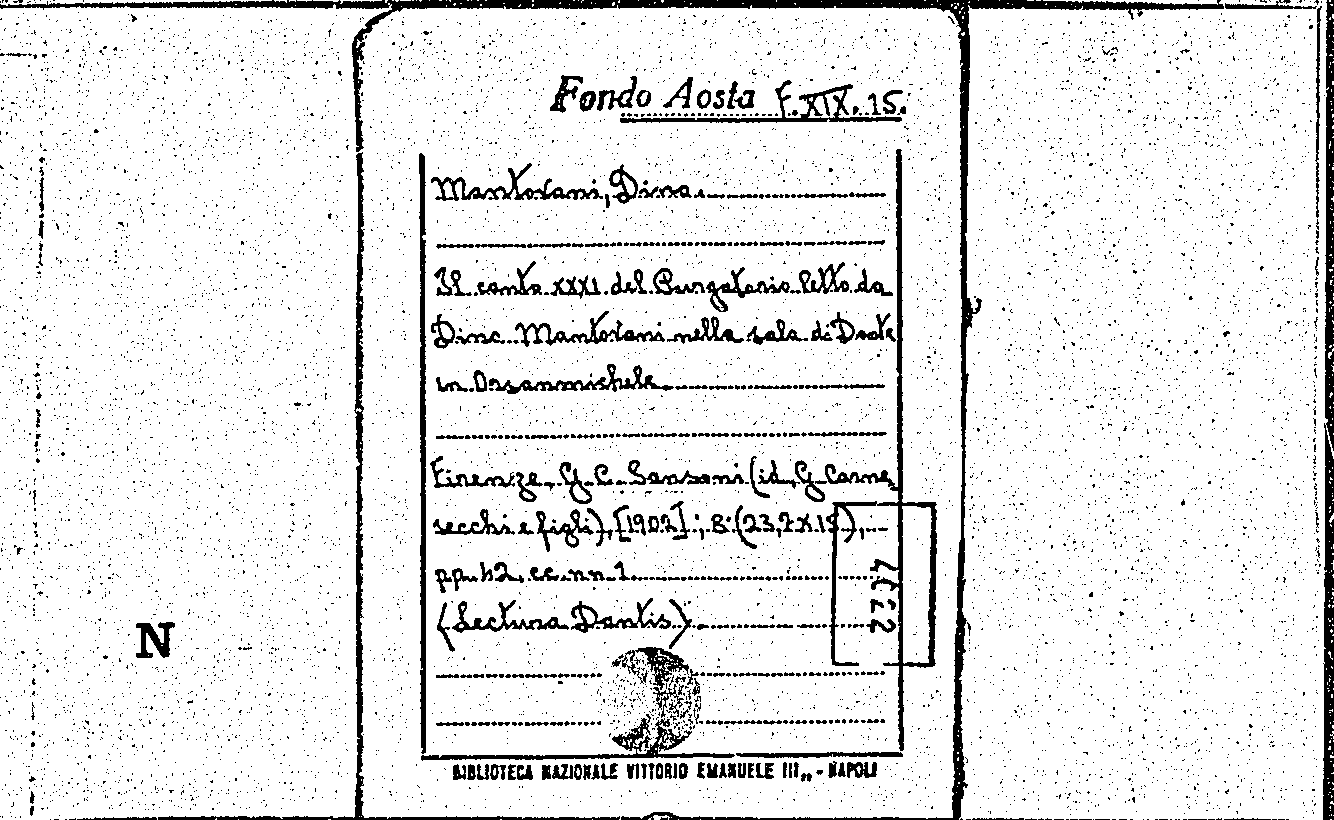 Fondo Aosta F. XIX. 15.
Mantovani, Dina.
Il canto XXXI del Purgatorio letto da
Dino Mantovani nella sala di Dante
in Orsanmichele.
Firenze, G. C. Sansoni (id., G. Carne,
secchi e figli), [1902]; 8° (23,7 x 15),
pp. 42, cc. nn. 1.
(Lectura Dantis).
N
BIBLIOTECA NAZIONALE VITTORIO EMANUELE III„ - NAPOLI